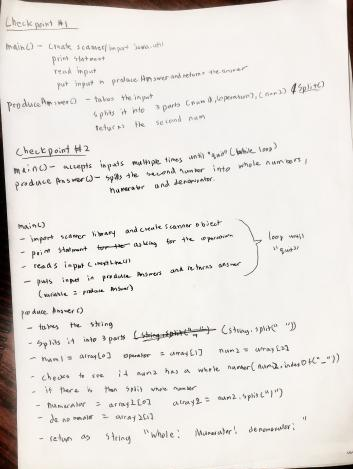 Checkpoint #1
main() - create scanner/import java.util
print statment
read input
put input in produce Answer and returns the answer
produceAnswer() - takes the input
splits it into 3 parts (num1), (operation), (num2) split()
returns the second num
Checkpoint #2
main() - accepts inputs multiple times until "quit" (while loop)
produce Answer() - splits the second number into whole numbers,
numerator and denominator.
main()
- import scanner library and create scanner object
- print statment asking for the operation
- reads input
- puts input in produce Answers and returns answer
(variable = produce Answer)
loop until
"quit"
produce Answer()
- takes the string
- splits it into 3 parts (string.split(" ")) (string.split(" "))
- num1 = array[0] operator = array[1] num2 = array[2]
- checks to see if num2 has a whole number (num2.indexOf("_"))
- if there is then split whole number
- numerator = array2[0] array2 = num2.split("/")
- denominator = array2[1]
- return as string "Whole: Numerator: denominator: "